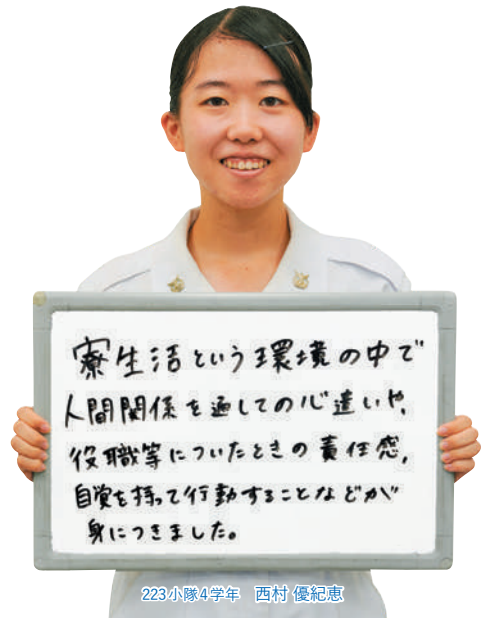 寮生活という環境の中で
人間関係を通しての心遣いや、
役職等についたときの責任感、
自覚を持って行動することなどが
身につきました。
223小隊4学年　西村 優紀恵